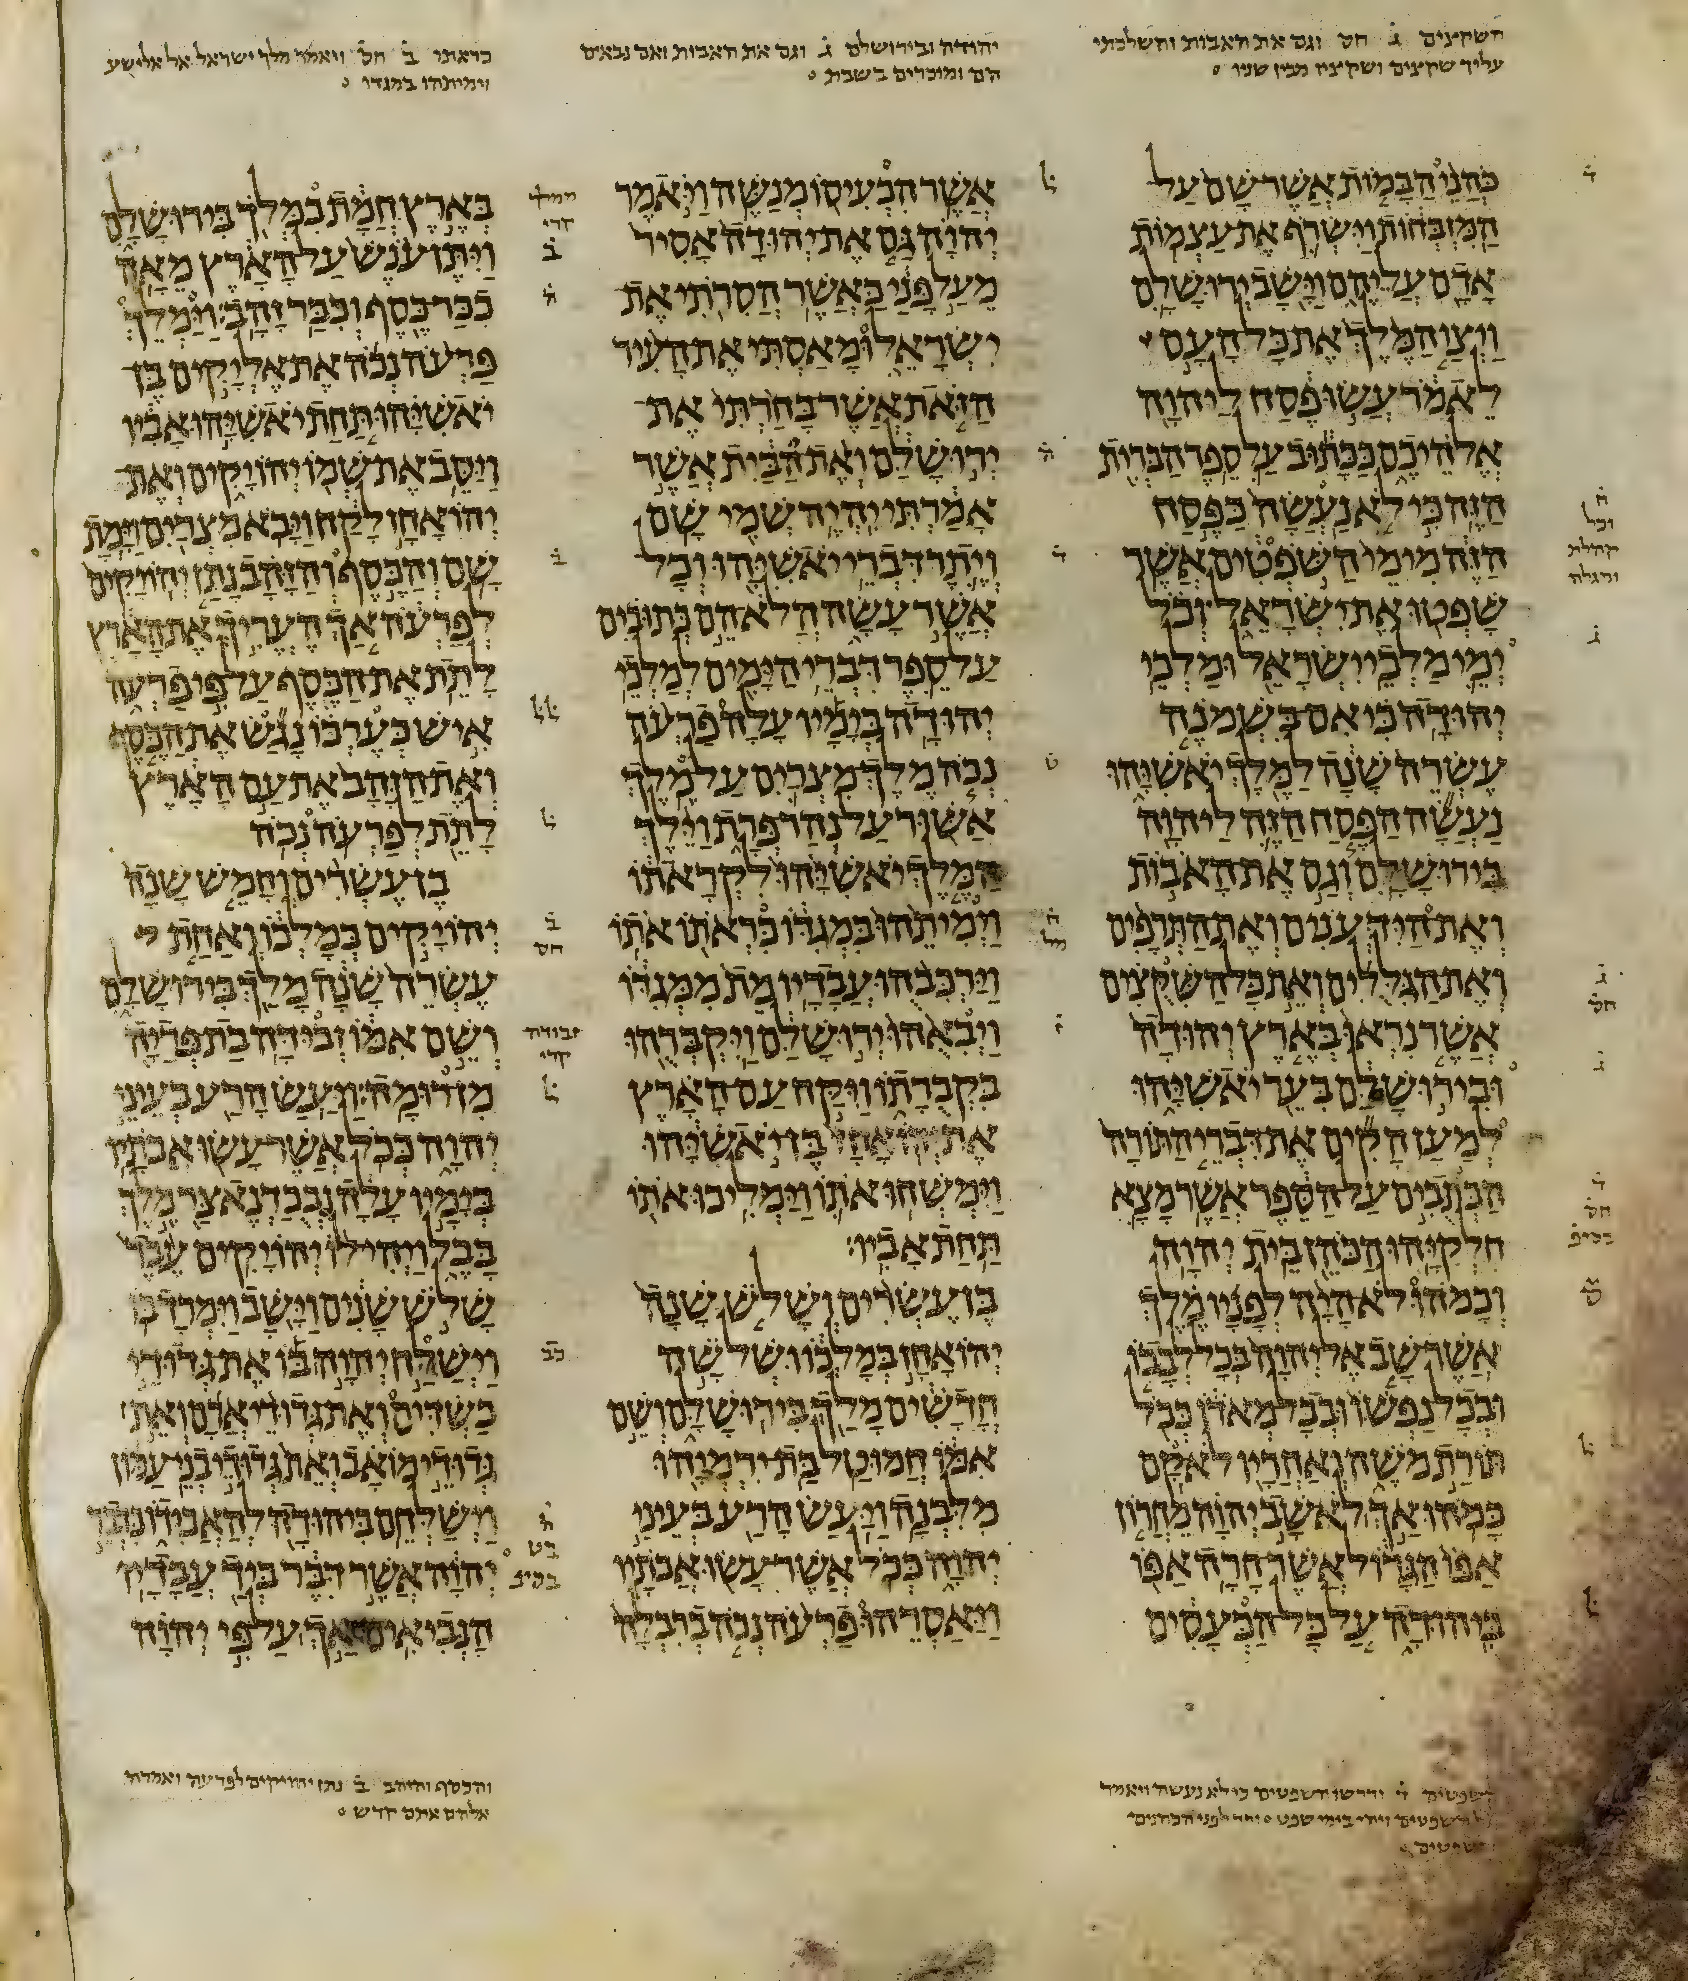 השקוצים ג חס וגם את האבות והשלכתי
עליך שקצים ושקציו מבין שניו
יהודה ובירושלם ג וגם את האבות ואם נבאים
הם ומוכרים בשבת
כראתו ב חס ויאמר מלך ישראל אל אלישע
וימיתהו במגדו
כהני הבמות אשר שם על
המזבחות וישרף את עצמות
אדם עליהם וישב ירושלם
ויצו המלך את כל העם
לאמר עשו פסח ליהוה
אלהיכם ככתוב על ספר הברית
הזה כי לא נעשה כפסח
הזה מימי השפטים אשר
שפטו את ישראל וכל
ימי מלכי ישראל ומלכי
יהודה כי אם בשמנה
עשרה שנה למלך יאשיהו
נעשה הפסח הזה ליהוה
בירושלם וגם את האבות
ואת הידענים ואת התרפים
ואת הגללים ואת כל השקצים
אשר נראו בארץ יהודה
ובירושלם בער יאשיהו
למען הקים את דברי התורה
הכתבים על הספר אשר מצא
חלקיהו הכהן בית יהוה
וכמהו לא היה לפניו מלך
אשר שב אל יהוה בכל לבבו
ובכל נפשו ובכל מאדו ככל
תורת משה ואחריו לא קם
כמהו אך לא שב יהוה מחרון
אפו הגדול אשר חרה אפו
ביהודה על כל הכעסים
אשר הכעיסו מנשה ויאמר
יהוה גם את יהודה אסיר
מעל פני כאשר הסרתי את
ישראל ומאסתי את העיר
הזאת אשר בחרתי את
ירושלם ואת הבית אשר
אמרתי יהיה שמי שם
ויתר דברי יאשיהו וכל
אשר עשה הלא הם כתובים
על ספר דברי הימים למלכי
יהודה בימיו עלה פרעה
נכה מלך מצרים על מלך
אשור על נהר פרת וילך
המלך יאשיהו לקראתו
וימיתהו במגדו כראתו אתו
וירכבהו עבדיו מת ממגדו
ויבאהו ירושלם ויקברהו
בקברתו ויקח עם הארץ
את יהואחז בן יאשיהו
וימשחו אתו וימליכו אתו
תחת אביו
בן עשרים ושלש שנה
יהואחז במלכו ושלשה
חדשים מלך בירושלם ושם
אמו חמוטל בת ירמיהו
מלבנה ויעש הרע בעיני
יהוה ככל אשר עשו אבתיו
ויאסרהו פרעה נכה ברבלה
בארץ חמת במלך בירושלם
ויתן ענש על הארץ מאה
ככר כסף וככר זהב וימלך
פרעה נכה את אליקים בן
יאשיהו תחת יאשיהו אביו
ויסב את שמו יהויקים ואת
יהואחז לקח ויבא מצרים וימת
שם והכסף והזהב נתן יהויקים
לפרעה אך העריך את הארץ
לתת את הכסף על פי פרעה
איש כערכו נגש את הכסף
ואת הזהב את עם הארץ
לתת לפרעה נכה
בן עשרים וחמש שנה
יהויקים במלכו ואחת
עשרה שנה מלך בירושלם
ושם אמו זבידה בת פדיה
מן רומה ויעש הרע בעיני
יהוה ככל אשר עשו אבתיו
בימיו עלה נבכדנאצר מלך
בבל ויהי לו יהויקים עבד
שלש שנים וישב וימרד בו
וישלח יהוה בו את גדודי
כשדים ואת גדודי ארם ואת
גדודי מואב ואת גדודי בני עמון
וישלחם ביהודה להאבידו כדבר
יהוה אשר דבר ביד עבדיו
הנביאים אך על פי יהוה
ודרשו השפטים כי לא נעשה ויאמר
השפטים ויהי בימי שפט לפני הכהנים
והכסף והזהב ב נתן יהויקים לפרעה ואמרת
אלהם אתם חדש